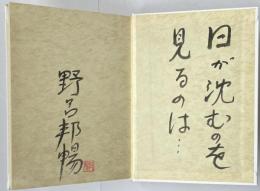 日が沈むのを
見るのは…
野呂邦暢